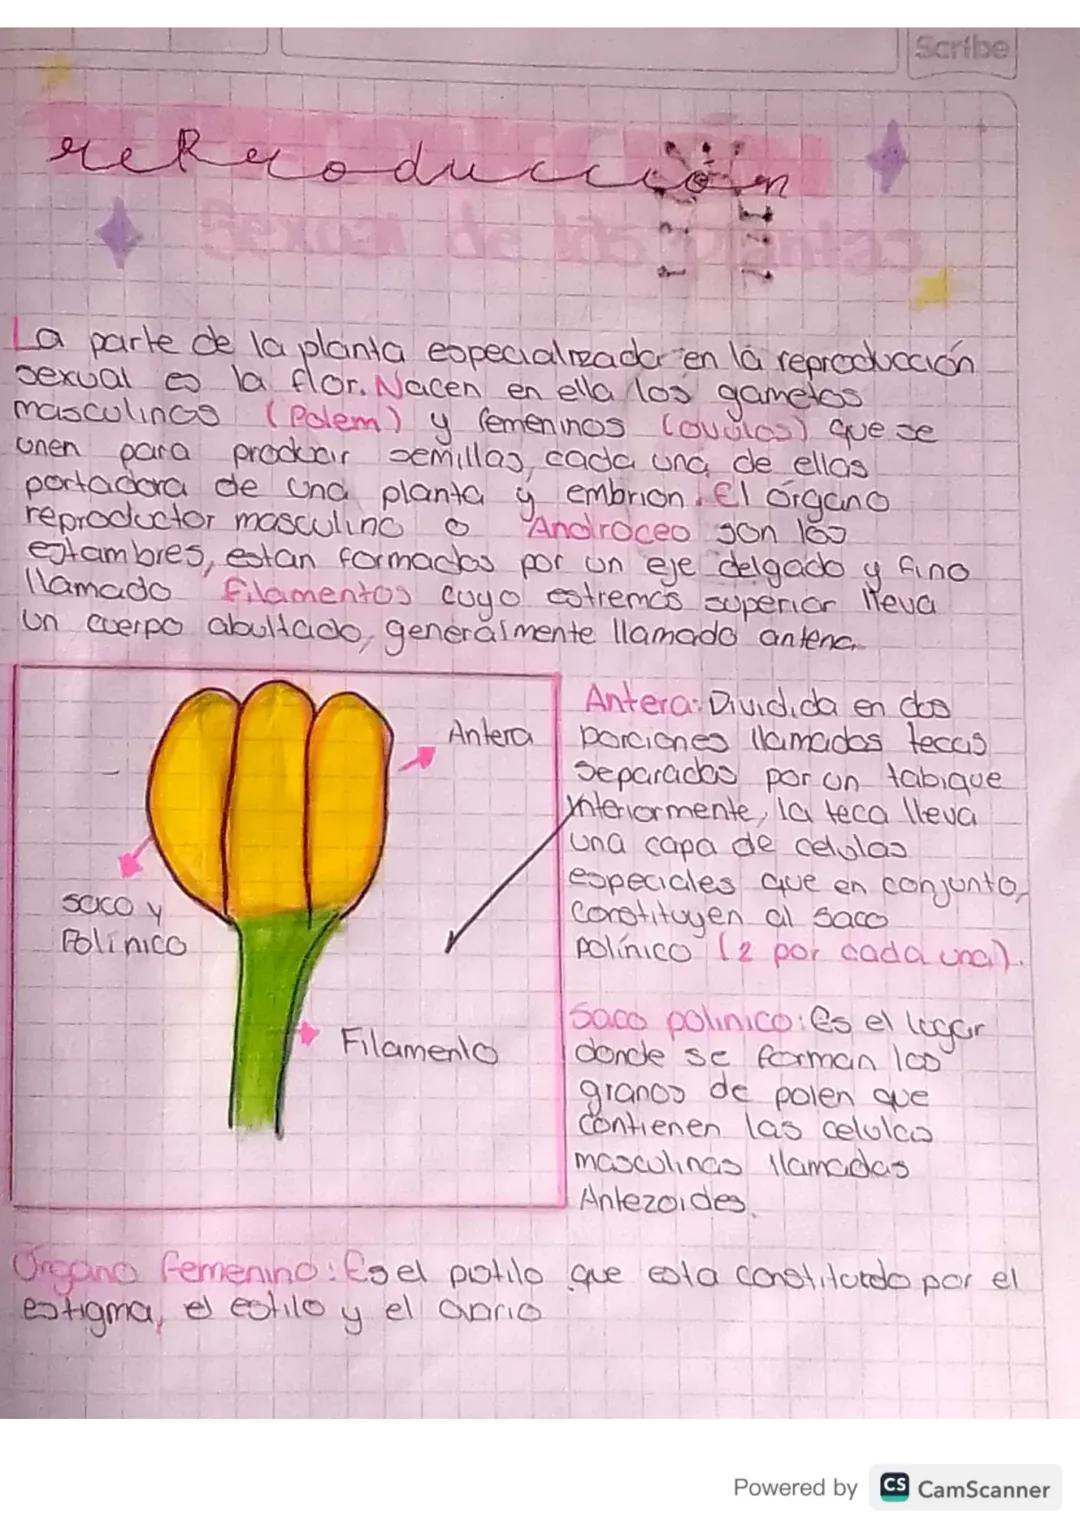 Scribe
reProducción
La parte de la planta especializada en la reproducción
sexual es la flor. Nacen en ella los gametos
masculinos (Polem) y femeninos (ovulos) que se
unen para producir semillas, cada una de ellas
portadora de una planta y embrion. El órgano
reproductor masculino o Androceo son los
estambres, estan formados por un eje delgado y fino
llamado filamentos cuyo estremos superior lleva
un cuerpo abultado, generalmente llamado antena.
Antera
saco y
Polínico
Filamento
Antera: Dividida en dos
porciones llamados tecas
separados por un tabique
interiormente, la teca lleva
una capa de celulas
especiales que en conjunto,
constituyen al saco
polínico (2 por cada una).
Saco polinico: Es el lugar
donde se forman los
granos de polen que
contienen las celulas
masculinas llamadas
Antezoides.
Órgano femenino: Es el pistilo que esta constituido por el
estigma, el estilo y el ovario
Powered by CS CamScanner